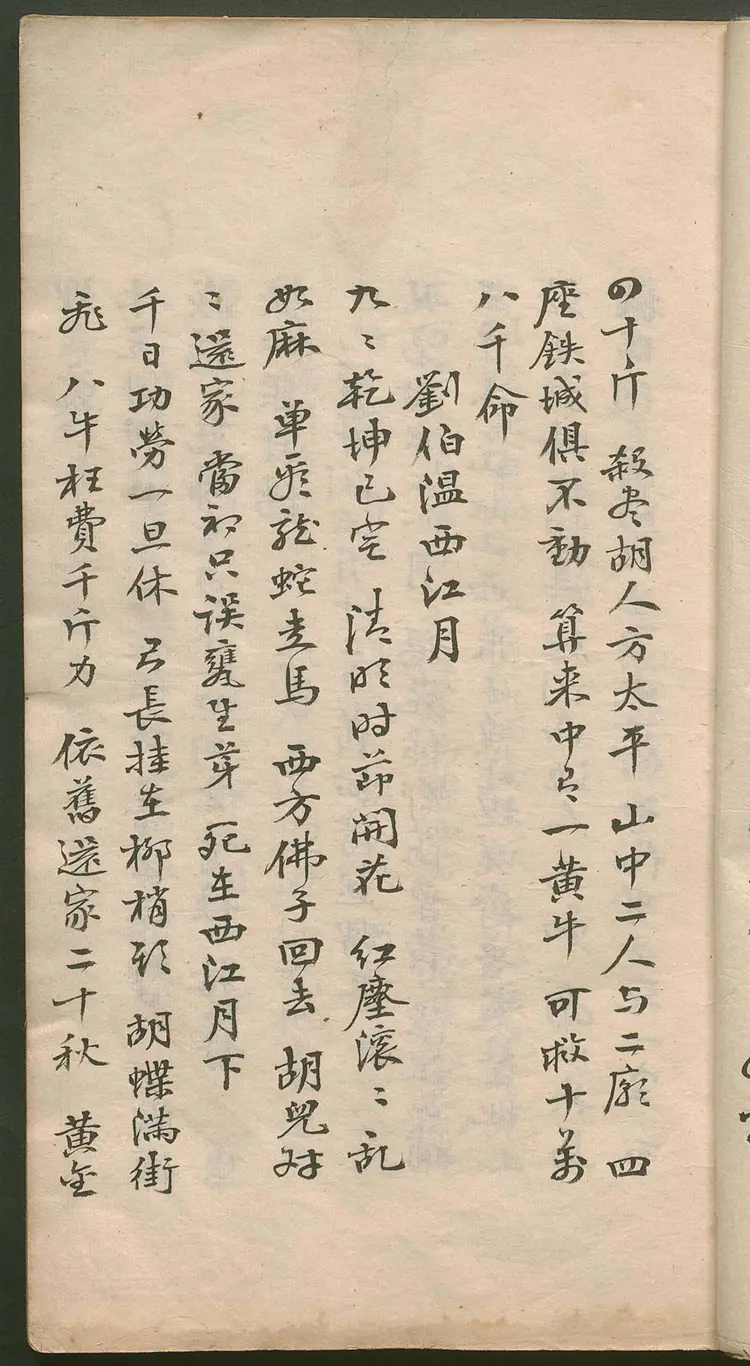 四十斤 殺尽胡人方太平 山中二人与二廟 四
座鉄城俱不動 算来中有一黄牛 可救十萬
八千命
劉伯溫西江月
九〻乾坤已定 清明时節開花 红塵滚〻乱
如麻 单羽龍蛇走馬 西方佛子回去 胡兒对
〻還家 當初只誤甕生芽 死在西江月下
千日功勞一旦休 弓長挂在柳梢头 胡蝶滿街
飛 八牛枉費千斤力 依舊還家二十秋 黄金